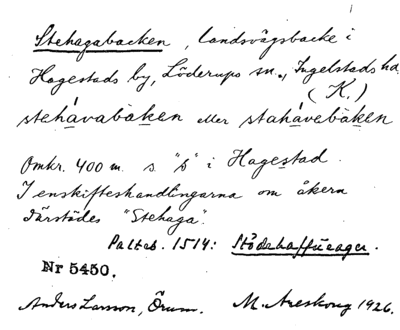 Stehagabacken, landsvägsbacke i
Hagestads by, Löderups sn., Ingelstads hd.
(K.)
stehávabàken eller stahávebàken
Omkr. 400 m. s. "s" i Hagestad.
I enskifteshandlingarna om åkern
därstädes "Stehaga".
Palteb. 1514: Stödehaffueager.
Nr 5450.
Anders Larsson, Örum. M. Areskoug 1926.